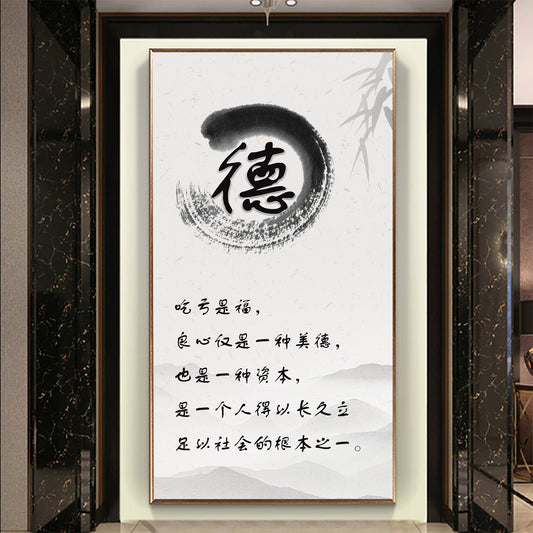 德
吃亏是福，
良心仅是一种美德，
也是一种资本，
是一个人得以长久立
足以社会的根本之一。